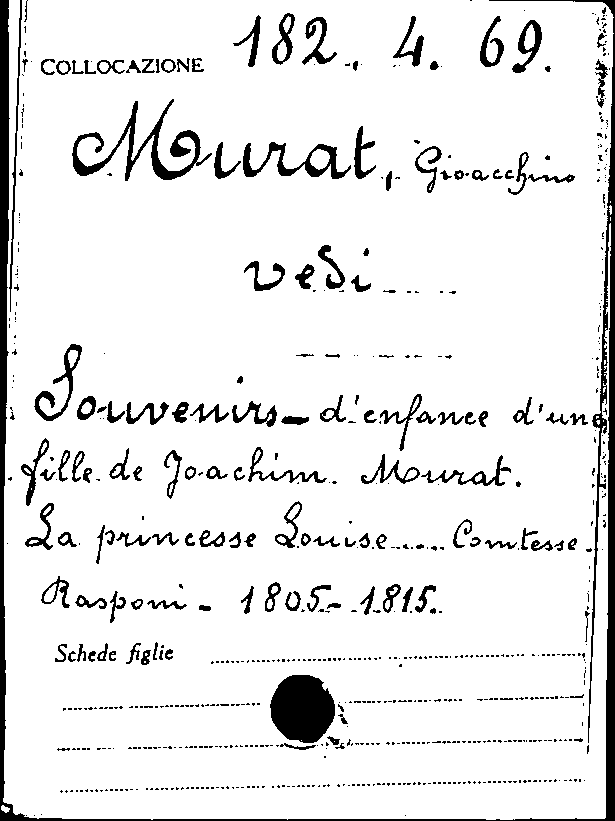 COLLOCAZIONE 182. 4. 69.
Murat, Gioacchino
vedi
Souvenirs - d'enfance d'une
fille de Joachim Murat.
La princesse Louise .... Comtesse
Rasponi - 1805 - 1815.
Schede figlie